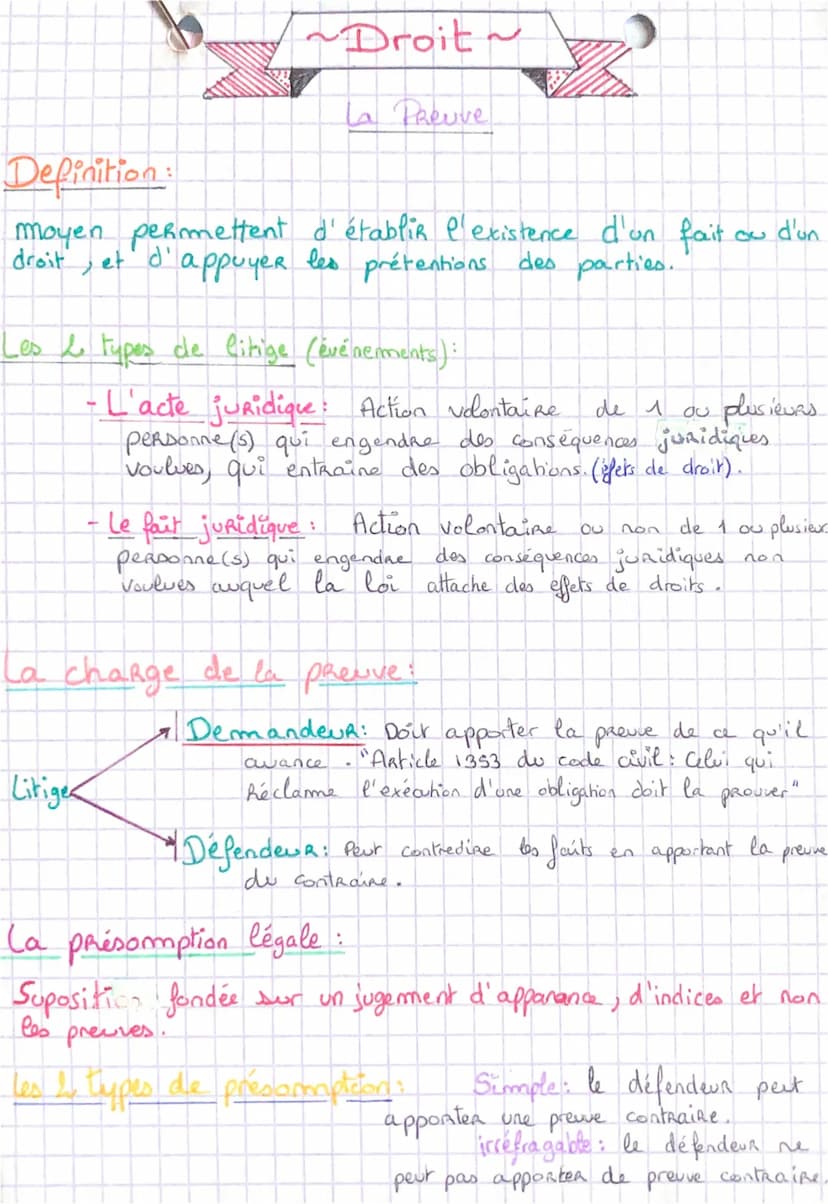 ~Droit~
La Preuve
Definition:
moyen permettent d'établir l'existence d'un fait ou d'un
droit, et d'appuyer les prétentions des parties.
Les 2 types de litige (événements):
- L'acte juridique: Action volontaire de 1 ou plusieurs
personne(s) qui engendre des conséquences juridiques
voulues, qui entraine des obligations. (effets de droit).
- Le fait juridique: Action volontaire ou non de 1 ou plusieur
personne(s) qui engendre des conséquences juridiques non
voulues auquel la loi attache des effets de droits.
La charge de la preuve:
Demandeur: Doit apporter la preuve de ce qu'il
avance. "Article 1353 du code civil: Celui qui
Litige Réclame l'exécution d'une obligation doit la prouver"
Défendeur: Peut contredire les faits en apportant la preuve
du contraire.
La présomption légale:
Suposition fondée sur un jugement d'apparance, d'indices et non
les preuves.
Les 2 types de présomption: Simple: le défendeur peut
apporter une preuve contraire.
irréfragable: le défendeur ne
peut pas apporter de preuve contraire.